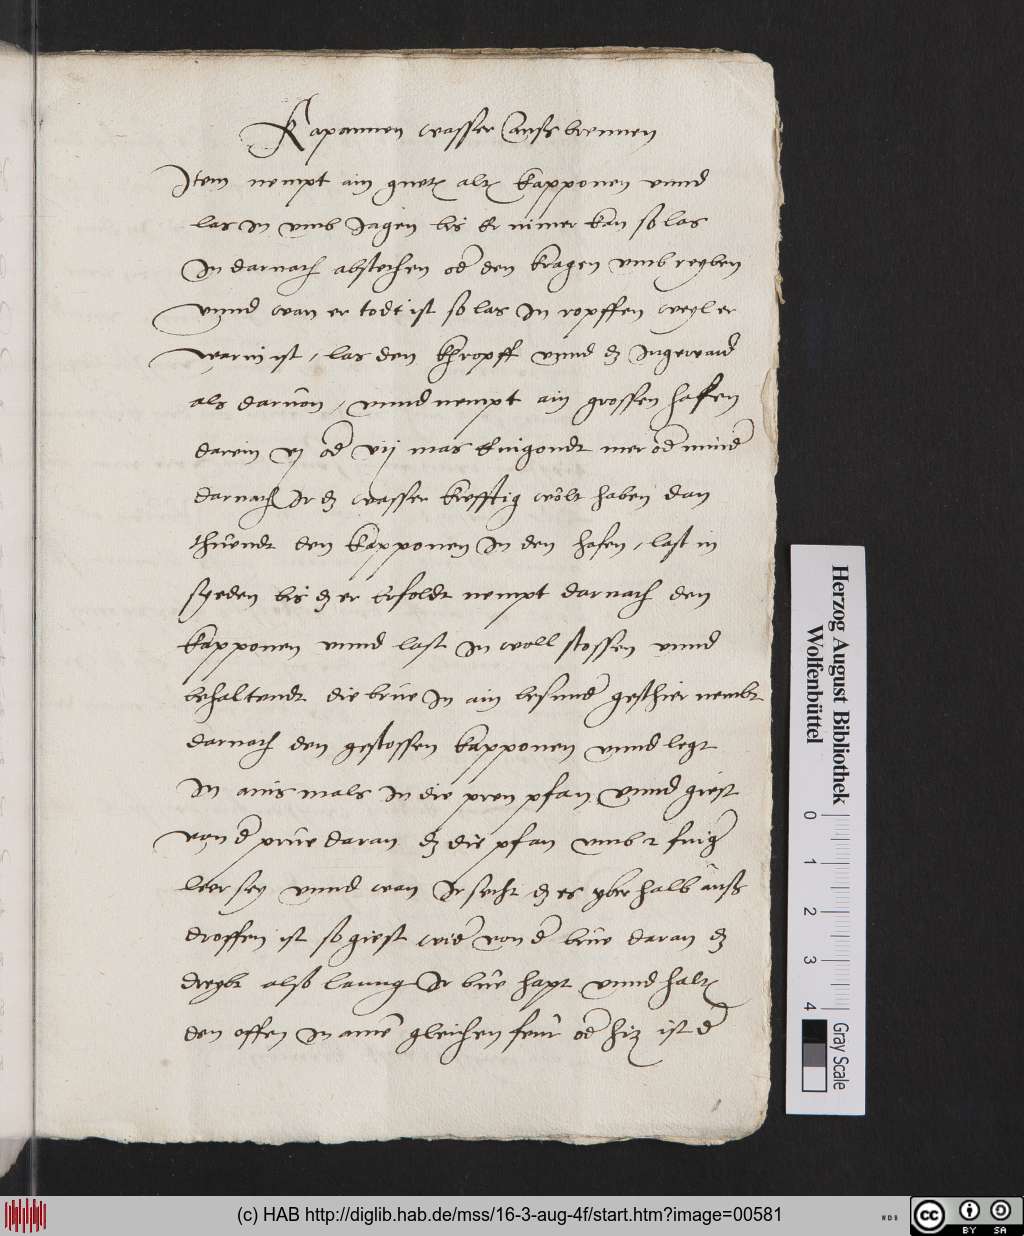 Kapannen wasser auß brennen
Item nempt ain guotn altn kapponen vnnd
las in vmb Jagen bis Er nimer kan so las
In darnach abstechen od den kragen vmb reyben
vnnd wan er todt ist so las In ropffen weyl er
warm ist, las den khropff vnnd dz Ingewaid
als daruon, vnnd nempt ain grossen hafen
darein vj od vij mas kuigondt mer od minder
darnach Ir dz wasser krefftig wölt haben dan
thüendt den kapponen In den hafen, last in
syeden bis dz er Ersoldt nempt darnach den
kapponen vnnd last In woll stossen vnnd
behaltendt die brüe In ain besunder geschier nembt
darnach den gestossen kapponen vnnd legt
In ains mals In die pren pfan vnnd giest
von der prüe daran dz die pfan vmb 2 finger
leer sey vnnd wan Ir secht dz es yber halb auß
droffen ist so giest wider von der brüe daran dz
dreybt also lanng Ir brüe hapt vnnd halt
den offen In ainē gleichen feür oder hiz ist d
Herzog August Bibliothek
Wolfenbüttel
0 1 2 3 4
Gray Scale
(c) HAB http://diglib.hab.de/mss/16-3-aug-4f/start.htm?image=00581
cc BY SA